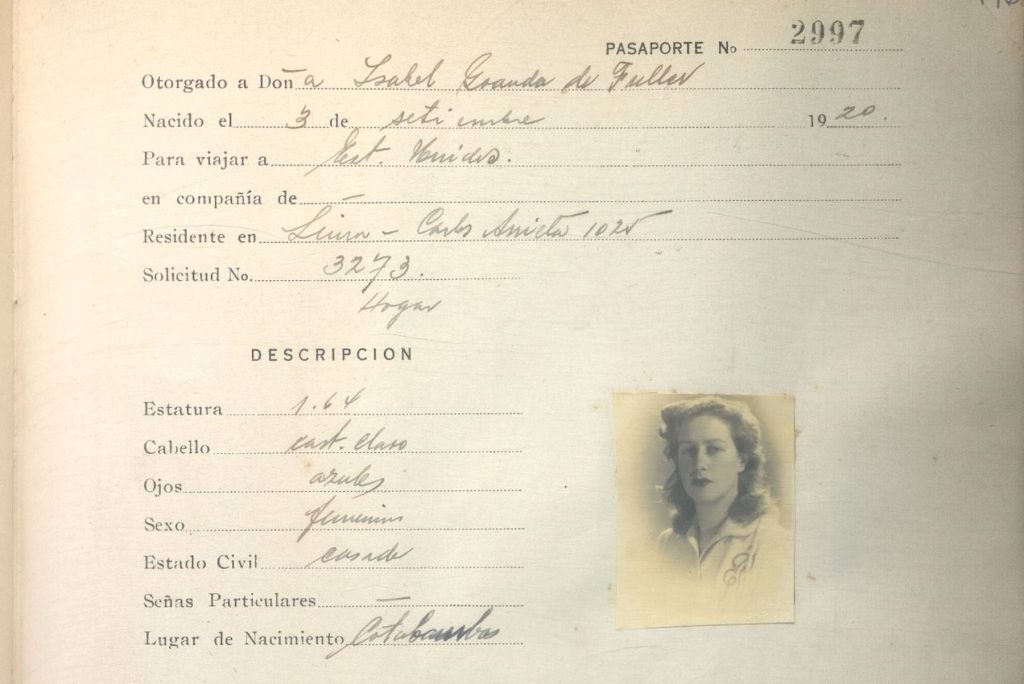 PASAPORTE No 2997
Otorgado a Doña Isabel Granda de Fuller
Nacido el 3 de setiembre 1920.
Para viajar a Est. Unidos.
en compañía de —
Residente en Lima - Carlos Arrieta 1025
Solicitud No. 3273.
Hogar
DESCRIPCION
Estatura 1.64
Cabello cast. claro
Ojos azules
Sexo femenino
Estado Civil casada
Señas Particulares —
Lugar de Nacimiento Cotabambas